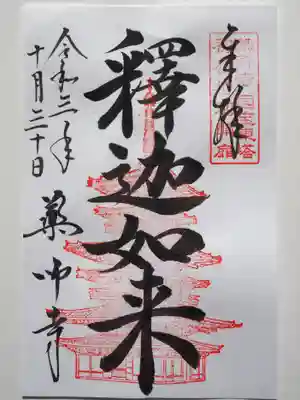 奉拝
釋迦如来
令和二年
十月三十日
薬师寺